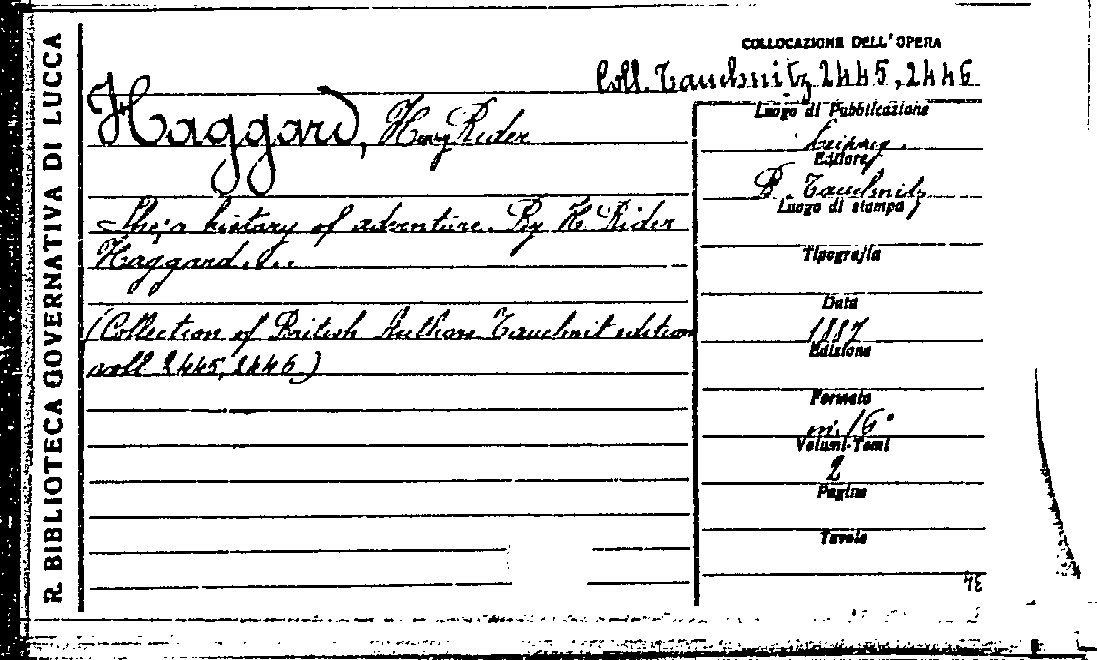 R. BIBLIOTECA GOVERNATIVA DI LUCCA
COLLOCAZIONE DELL'OPERA
Coll. Tauchnitz 2445, 2446
Haggard, Henry Rider
She; a history of adventure. By H. Rider
Haggard. ...
(Collection of British Authors Tauchnitz edition
voll 2445, 2446)
Luogo di Pubblicazione
Leipzig.
Editore
B. Tauchnitz
Luogo di stampa
Tipografia
Data
1887
Edizione
Formato
m. 16°
Volumi-Tomi
2
Pagine
Tavole